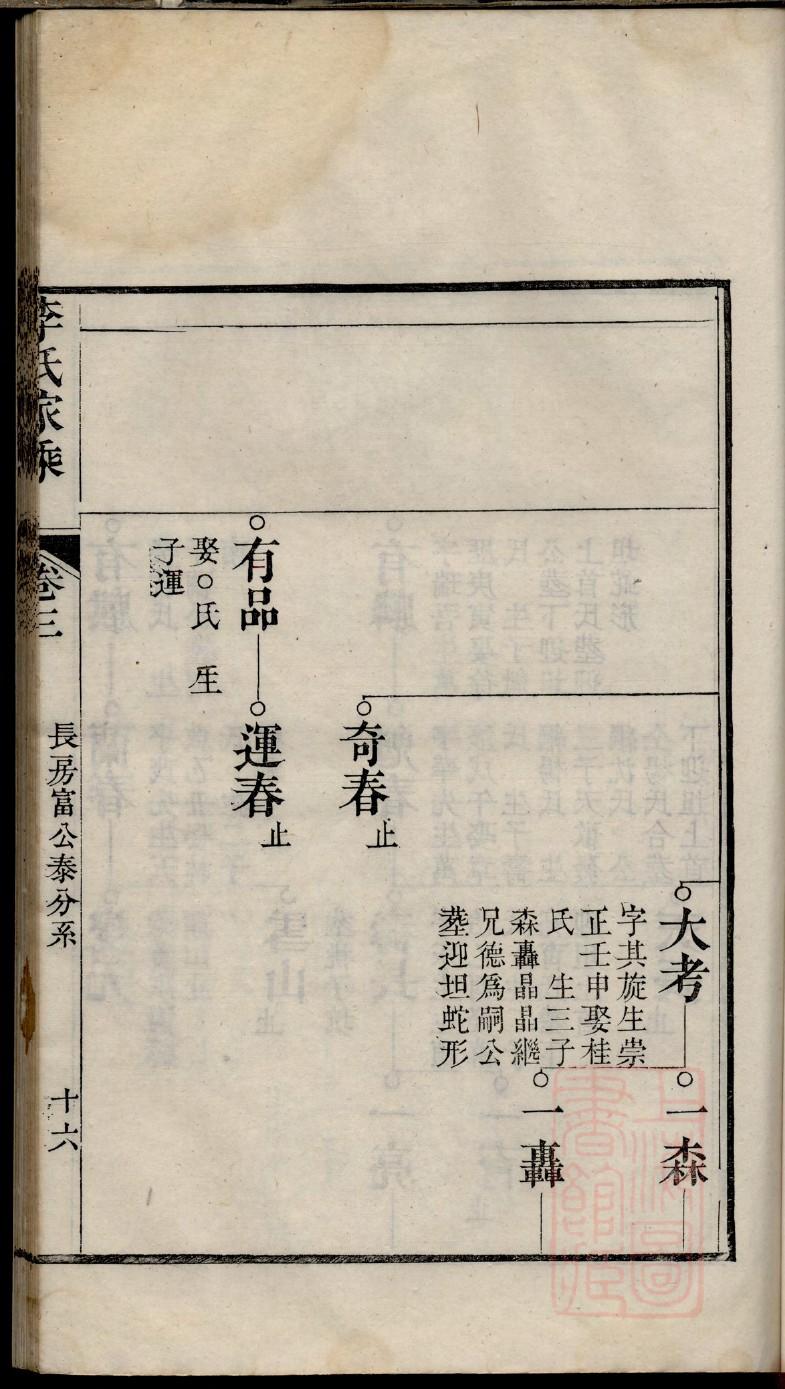 大考
字其旋生崇
正壬申娶桂
氏　生三子
森轟晶晶繼
兄德為嗣公
塟迎坦蛇形
一森
一轟
奇春止
有品
娶○氏　生
子運
運春止
李氏家乘
卷三
長房富公泰分系
十六
上海圖書館藏